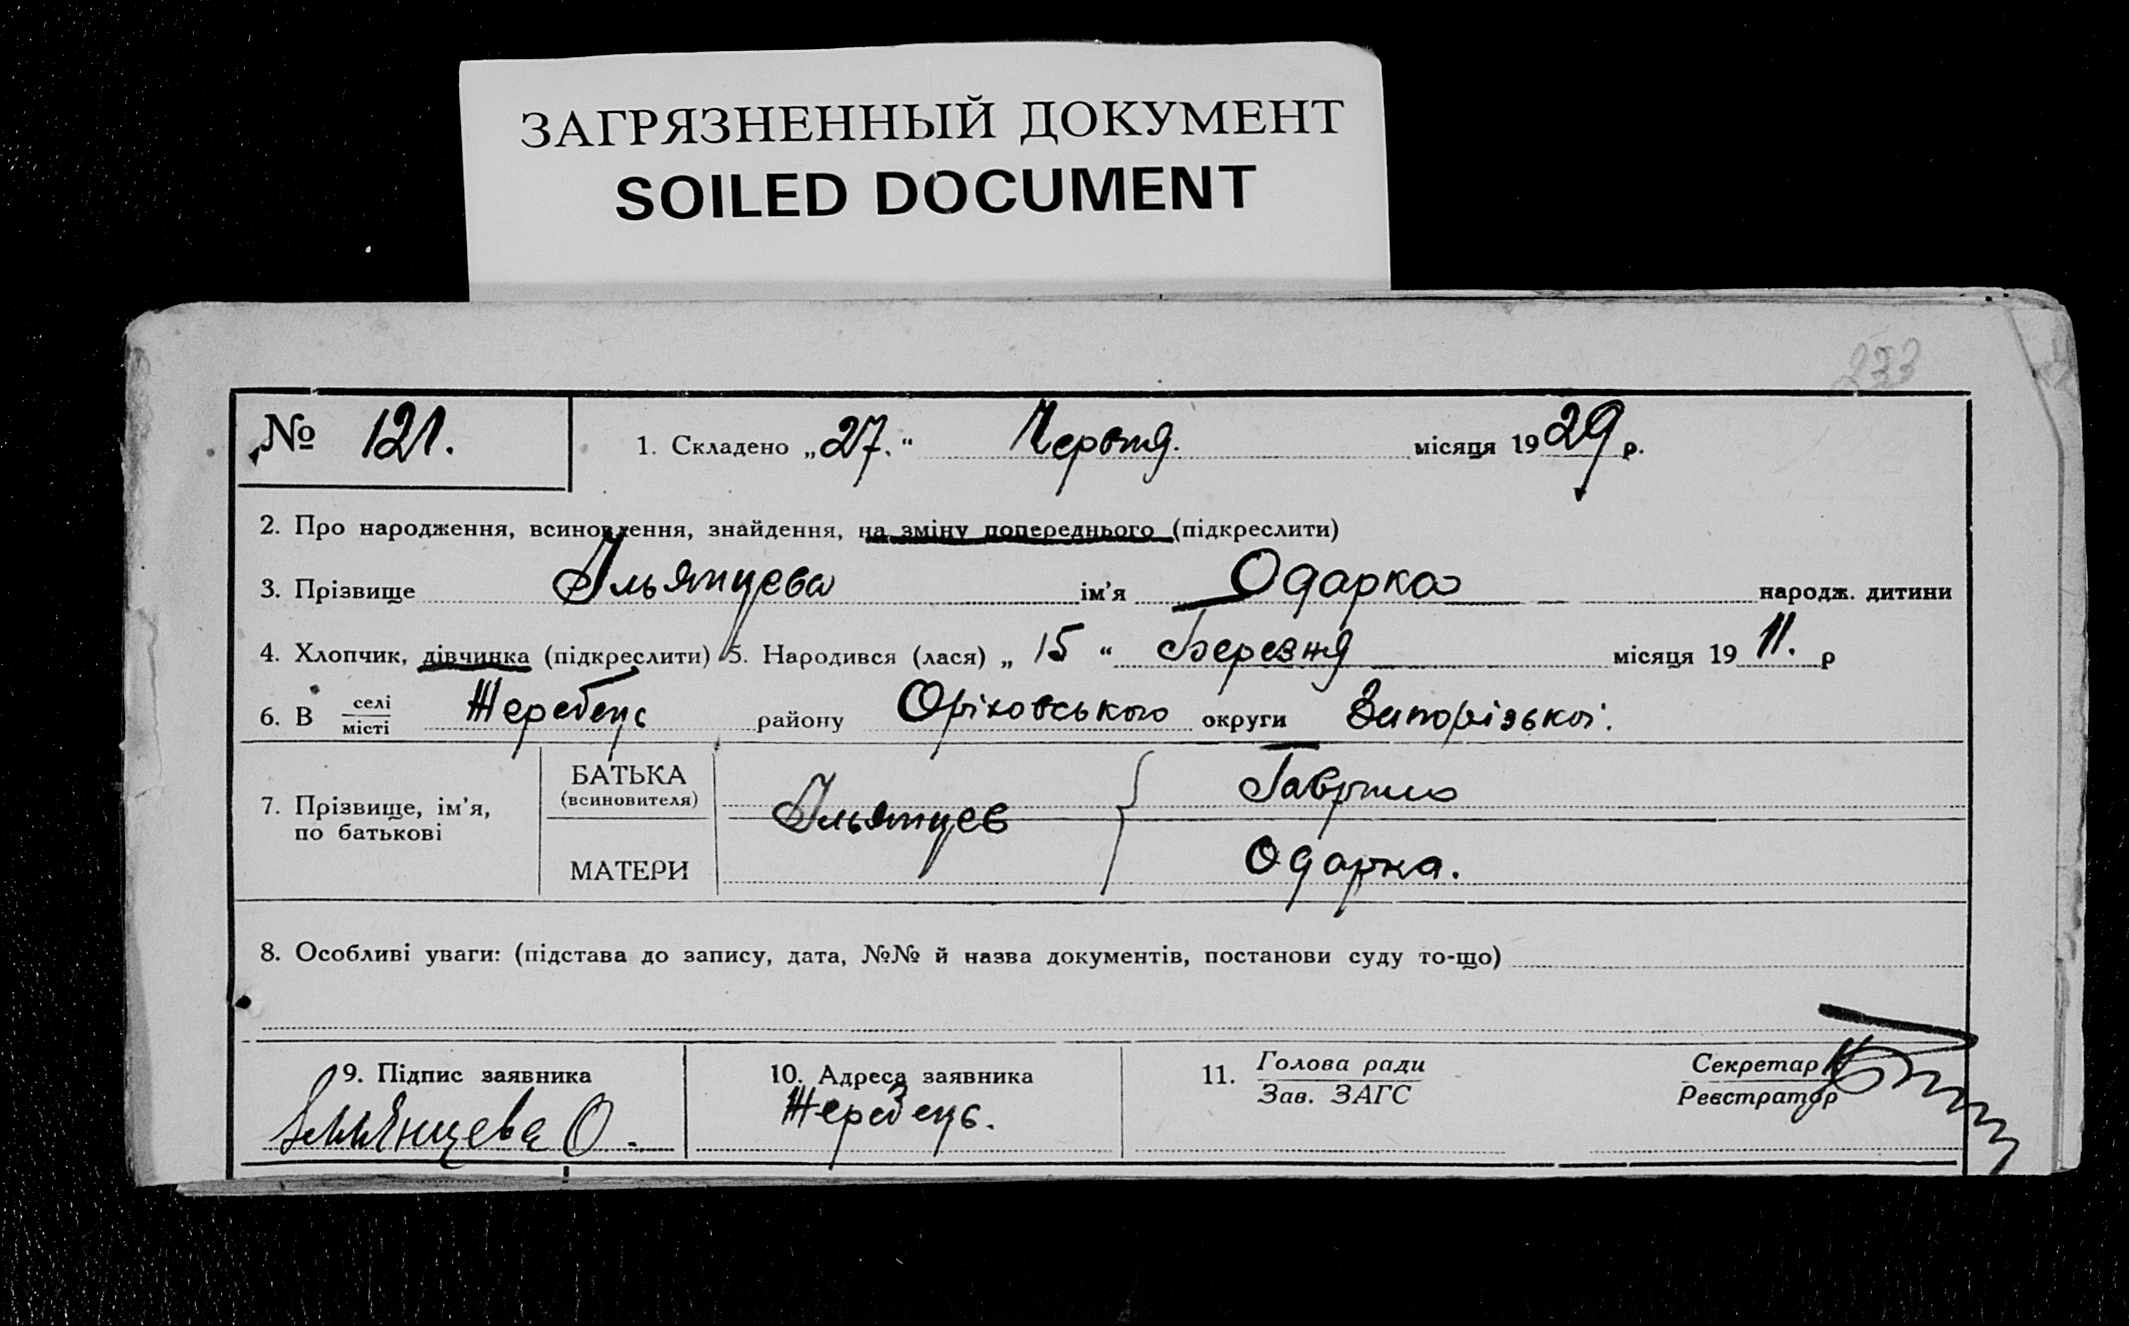 ЗАГРЯЗНЕННЫЙ ДОКУМЕНТ
SOILED DOCUMENT
233
№ 121. 1. Складено „27." Червня. місяця 1929 р.
2. Про народження, всиновлення, знайдення, на зміну попереднього (підкреслити)
3. Прізвище Ільянцева ім'я Одарка народж. дитини
4. Хлопчик, дівчинка (підкреслити) 5. Народився (лася) „ 15 " Березня місяця 19 11. р
6. В селі місті Жеребець району Оріховського округи Запорізької.
7. Прізвище, ім'я, по батькові
БАТЬКА (всиновителя) Ільянцев Гаврило
МАТЕРИ Одарка.
8. Особливі уваги: (підстава до запису, дата, №№ й назва документів, постанови суду то-що)
9. Підпис заявника 10. Адреса заявника 11. Голова ради Секретар
Зав. ЗАГС Реєстратор
Ільянцева О. Жеребець.